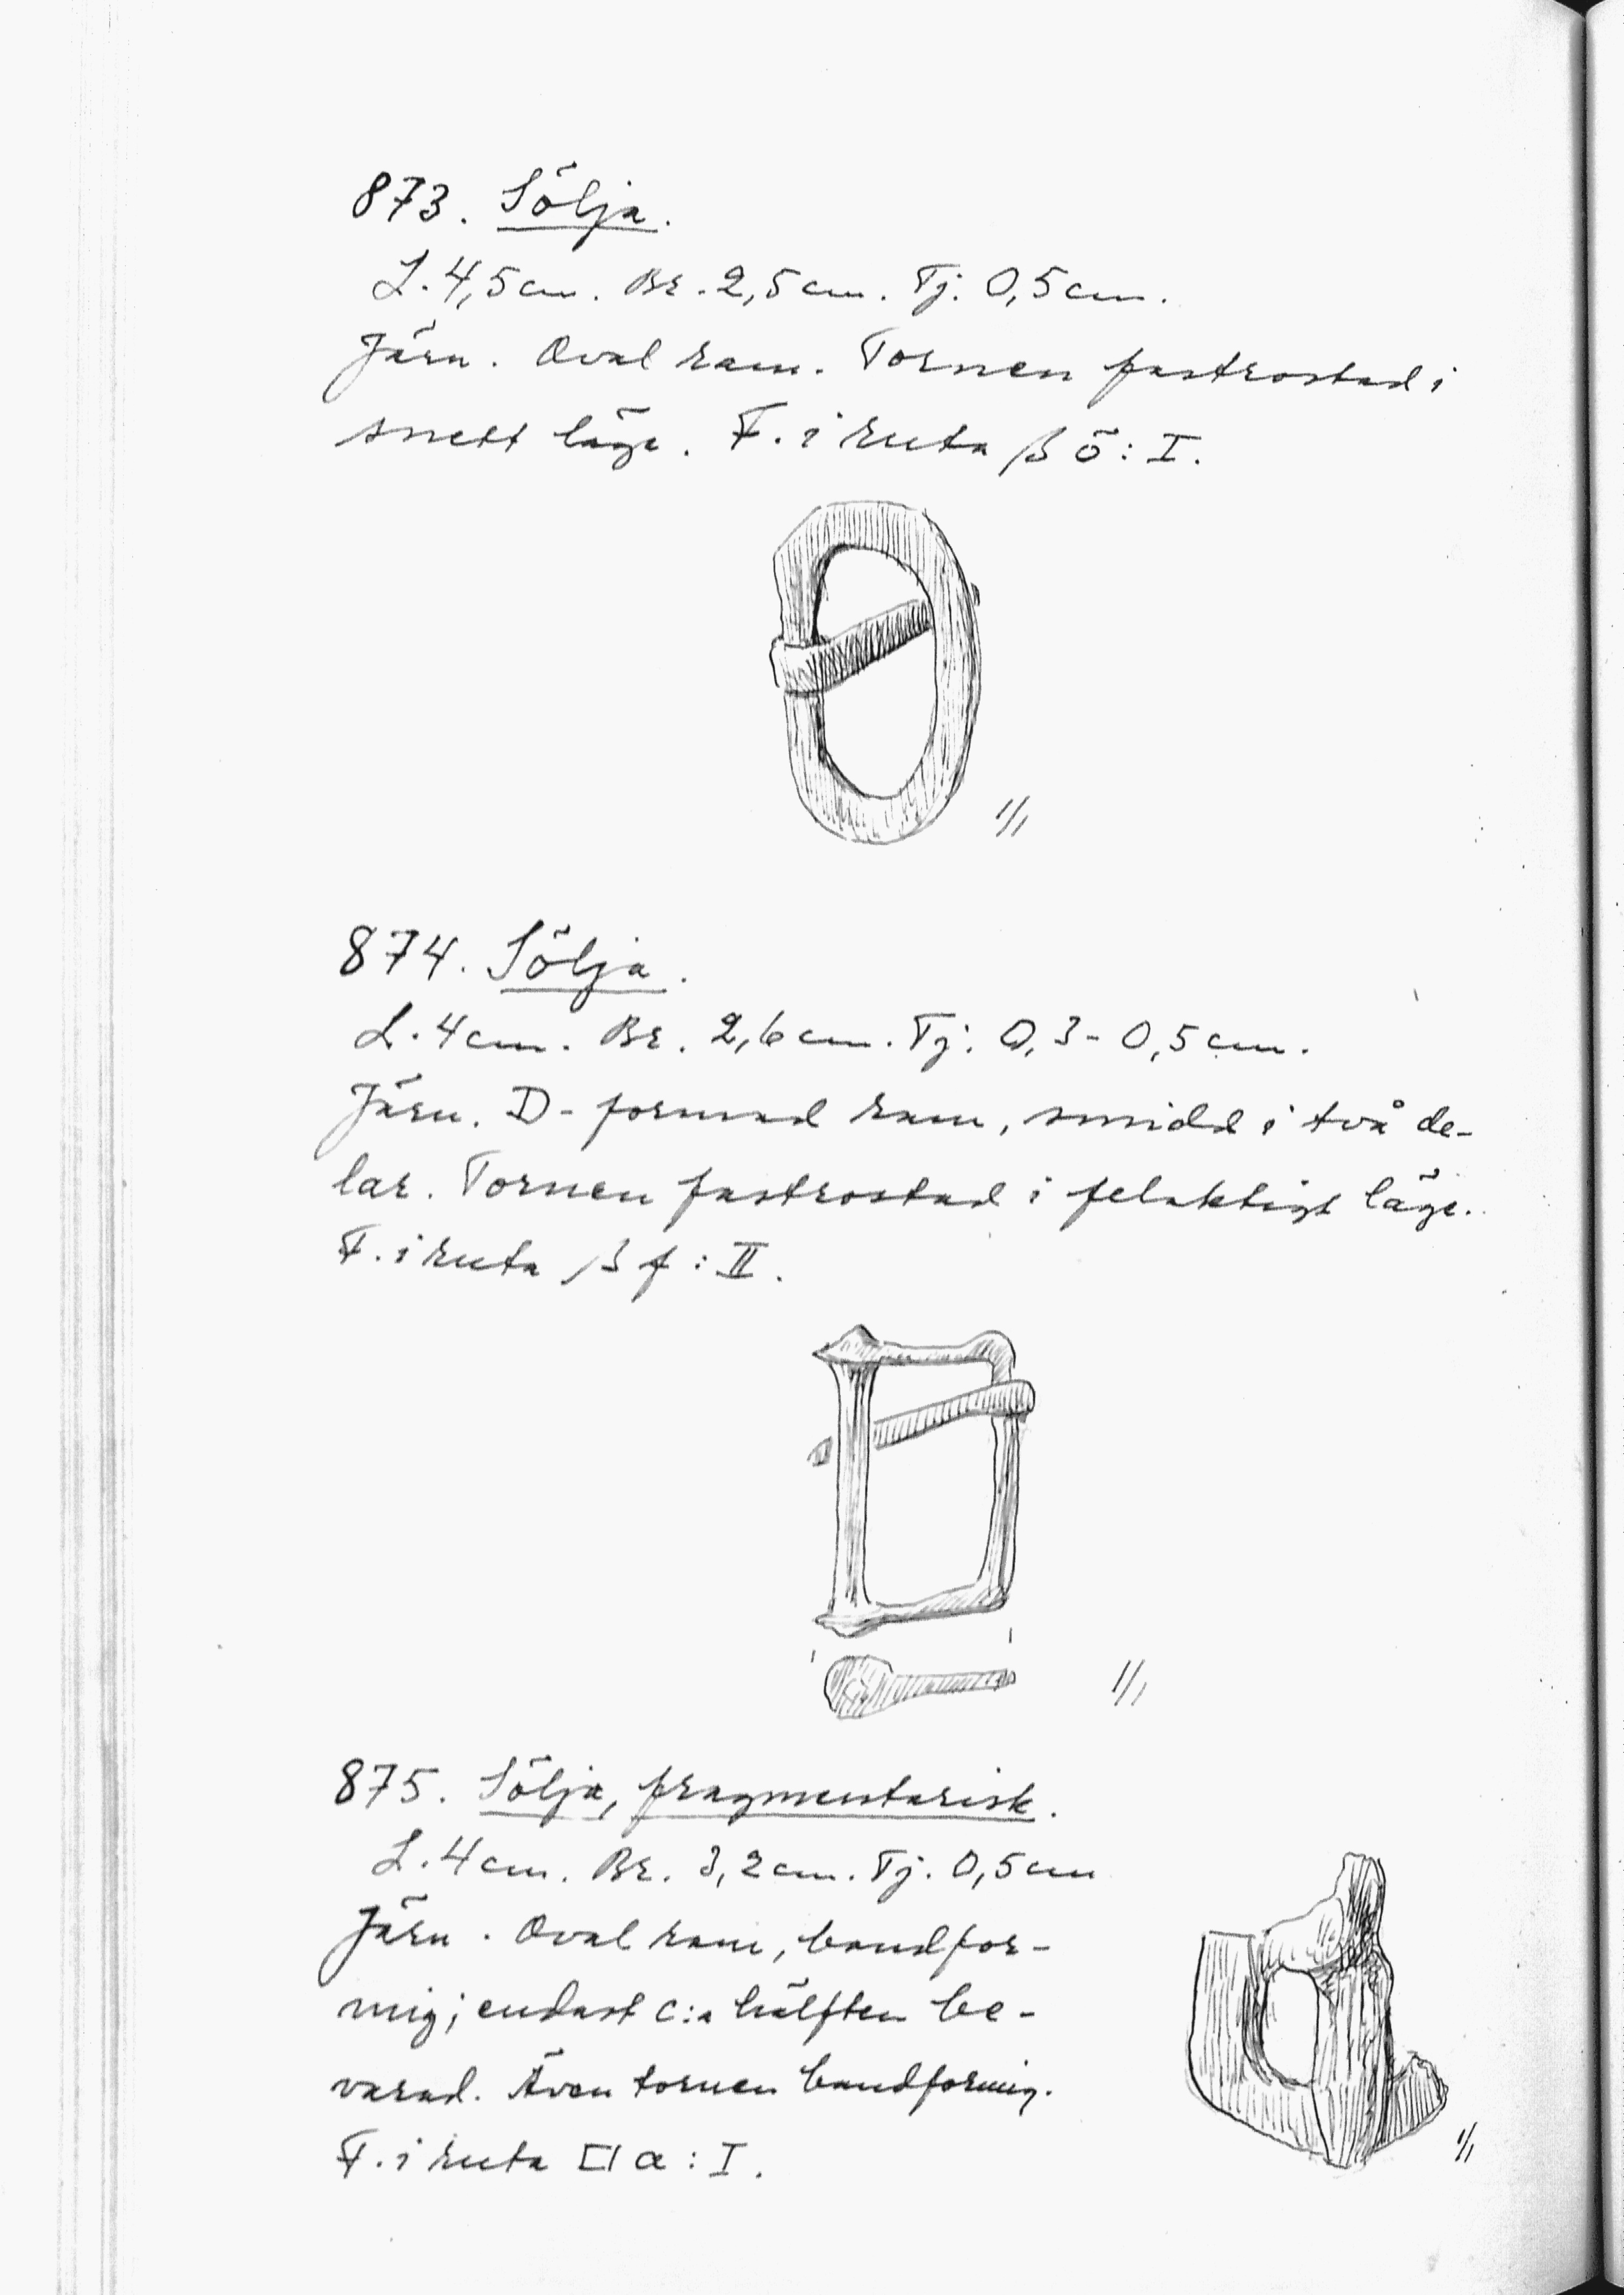 873. Sölja.
L. 4,5 cm. Br. 2,5 cm. Tj. 0,5 cm.
Järn. Oval ram. Tornen fastrostad i
snett läge. F. i ruta β ö : I.
1/1
874. Sölja.
L. 4 cm. Br. 2,6 cm. Tj. 0,3 - 0,5 cm.
Järn. D-formad ram, smidd i två de-
lar. Tornen fastrostad i felaktigt läge.
F. i ruta β f : II.
1/1
875. Sölja, fragmentarisk.
L. 4 cm. Br. 3,2 cm. Tj. 0,5 cm
Järn. Oval ram, bandfor-
mig; endast c:a hälften be-
varad. Även tornen bandformig.
F. i ruta □ a : I.
1/1